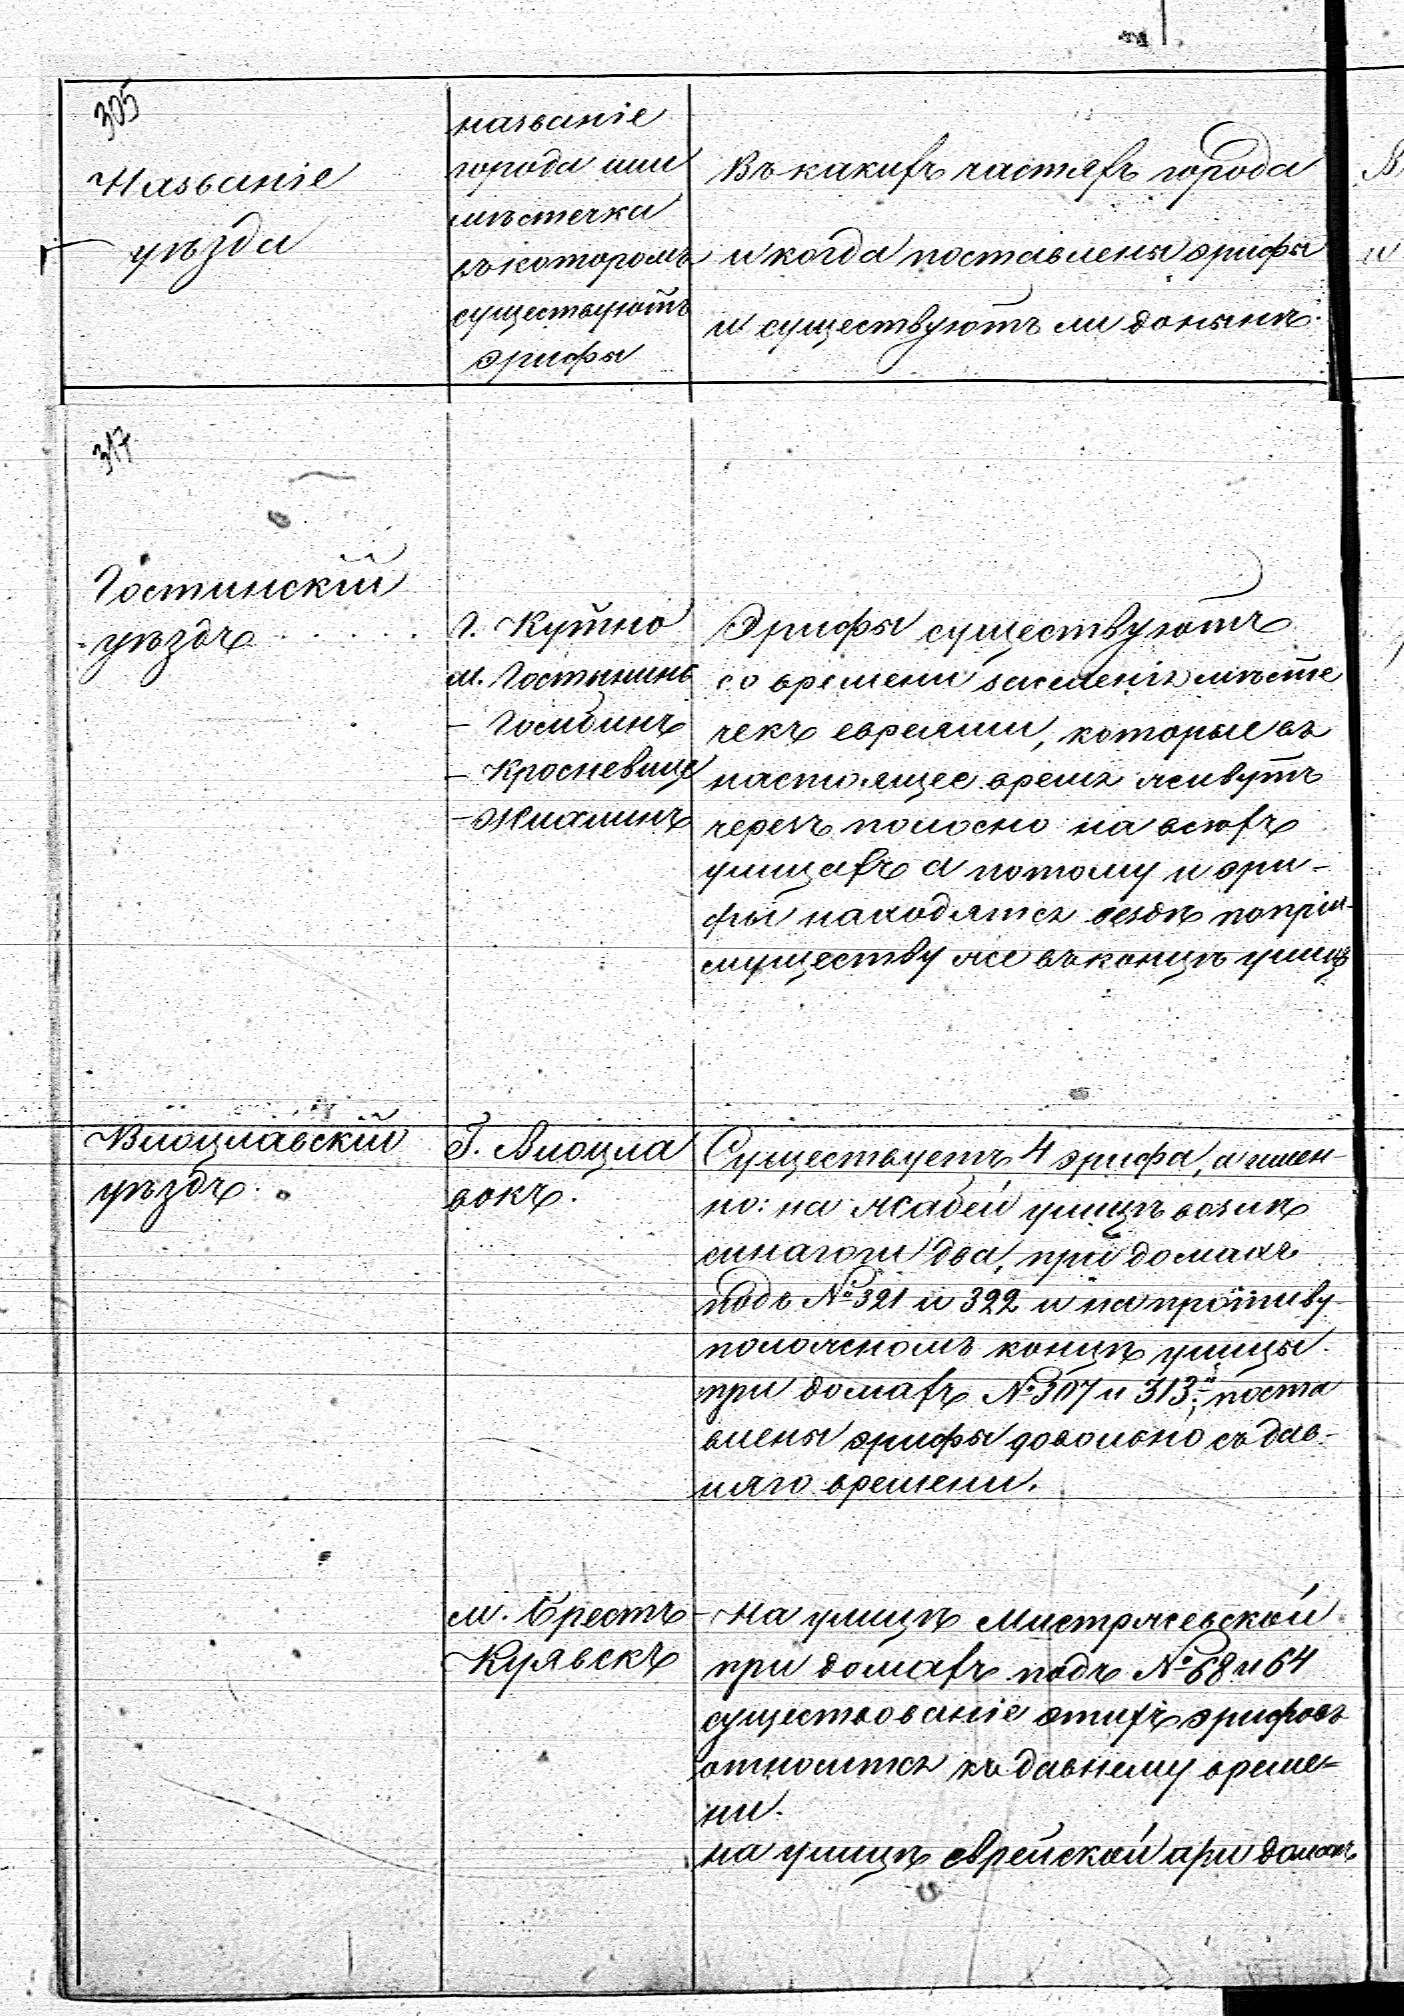 305
Названіе
уѣзда
названіе
города или
мѣстечка
въ которомъ
существуютъ
эрифы
Въ какихъ частяхъ города
и когда поставлены эрифы
и существуютъ ли донынѣ.
В
и
317
Гостинскій
уѣздъ
г. Кутно
м. Гостынинъ
— Гомбинъ
— Кросневице
— Жихлинъ
Эрифы существуютъ
со времени заселенія мѣсте
чекъ евреями, которые въ
настоящее время живутъ
черезъ полосно на всѣхъ
улицахъ а потому и эри-
фы находятся вездѣ по преи-
муществу же въ концѣ улицъ
Влоцлавскій
уѣздъ.
Г. Влоцла
вокъ.
Существуетъ 4 эрифа, а имен-
но: на Жабей улицѣ возлѣ
синагоги два, при домахъ
подъ № 321 и 322 и на противу
положномъ концѣ улицы
при домахъ № 307 и 313; поста
влены эрифы довольно съ дав-
няго времени.
м. Брестъ
Куявскъ
— На улицѣ Мистржевской
при домахъ подъ № 68 и 64
существованіе этихъ эрифовъ
относится къ давнему време-
ни.
на улицѣ еврейской при домахъ